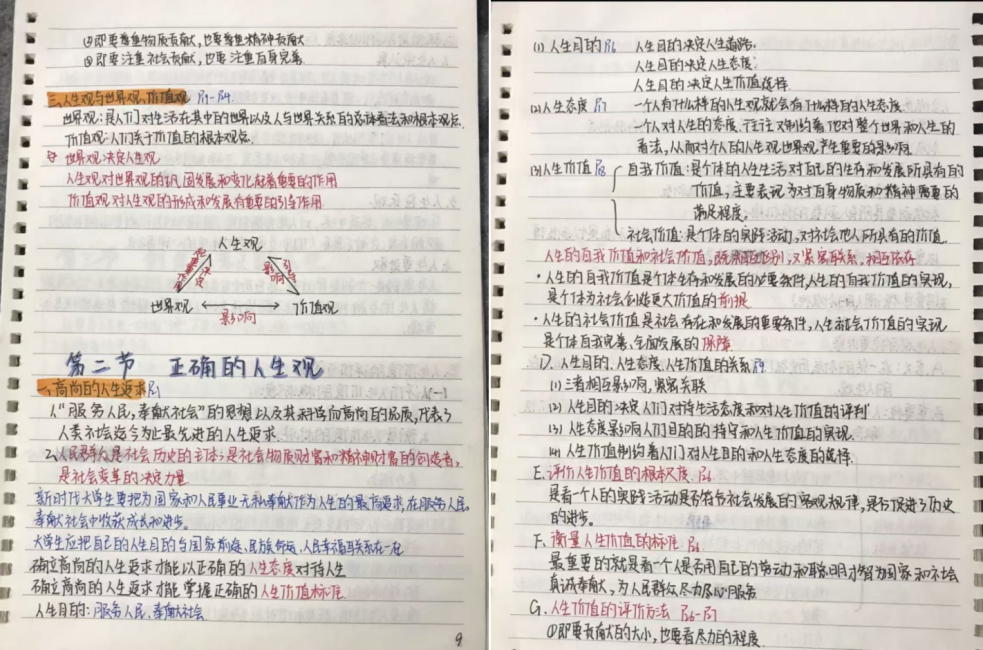 ②即要尊重物质贡献,也要尊重精神贡献
③即要注重社会贡献,也要注重自身完善
三.人生观与世界观、价值观 P1-P4.
世界观:是人们对生活在其中的世界以及人与世界关系的总体看法和根本观点.
价值观:人们关于价值的根本观点.
世界观决定人生观
人生观对世界观的巩固发展和变化起着重要的作用
价值观对人生观的形成和发展有重要的引导作用
人生观
影响
世界观 价值观
影响
第二节 正确的人生观
一.高尚的人生追求
1.“服务人民,奉献社会”的思想以及其科学而高尚的品质,代表了
人类社会迄今为止最先进的人生追求.
2.人民群众是社会历史的主体;是社会物质财富和精神财富的创造者,
是社会变革的决定力量
新时代大学生要把为国家和人民事业无私奉献作为人生的最高追求,在服务人民、
奉献社会中收获成长和进步。
大学生应把自己的人生目的与国家前途、民族命运、人民幸福联系在一起
确立高尚的人生追求才能以正确的人生态度对待人生
确立高尚的人生追求才能掌握正确的人生价值标准
人生目的:服务人民、奉献社会
9
(1)人生目的 P6 人生目的决定人生道路.
人生目的决定人生态度.
人生目的决定人生价值选择
(2)人生态度 P7 一个人有什么样的人生观就会有什么样的人生态度
一个人对人生的态度、往往又制约着他对整个世界和人生的
看法,从而对个人的人生观世界观产生重要的影响
(3)人生价值 P8 自我价值:是个体的人生生活对自己的生存和发展所具有的
价值,主要表现为对自身物质和精神需要的
满足程度。
社会价值:是个体的实践活动,对社会他人所具有的价值
人生的自我价值和社会价值,既相互区别,又紧密联系、相互依存
·人生的自我价值是个体生存和发展的必要条件,人生的自我价值的实现,
是个体为社会创造更大价值的前提
·人生的社会价值是社会存在和发展的重要条件,人生社会价值的实现
是个体自我完善、全面发展的保障
D.人生目的、人生态度、人生价值的关系 P9
(1)三者相互影响,紧密关联
(2)人生目的决定人们对待生活态度和对人生价值的评判
(3)人生态度影响人们目的的持守和人生价值的实现.
(4)人生价值制约着人们对人生目的和人生态度的选择.
E.评价人生价值的根本尺度
是看一个人的实践活动是否符合社会发展的客观规律,是否促进了历史
的进步。
F.衡量人生价值的标准
最重要的就是看一个人是否用自己的劳动和聪明才智为国家和社会
真诚奉献,为人民群众尽力尽心服务
G.人生价值的评价方法 P6-P7
①即要贡献大的大小,也要看尽力的程度